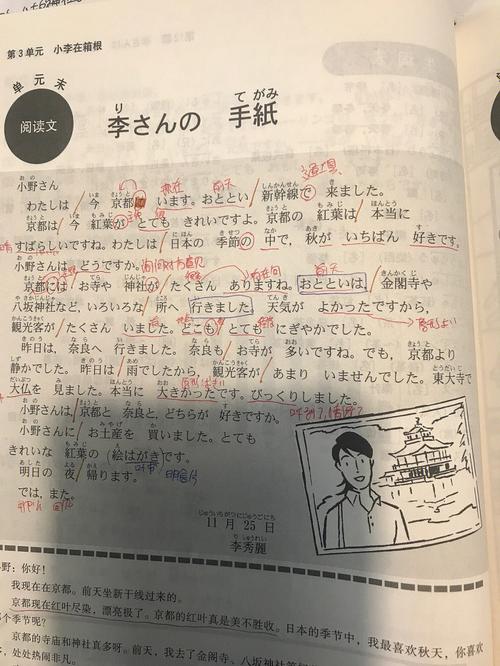 第3单元 小李在箱根
单元末
阅读文
り てがみ
李さんの 手紙
おの
小野さん
いま きょうと しんかんせん き
わたしは 今 京都に います。おととい 新幹線で 来ました。
きょうと いま もみじ きょうと もみじ ほんとう
京都は 今 紅葉が とても きれいですよ。京都の 紅葉は 本当に
にほん きせつ なか あき す
すばらしいですね。わたしは 日本の 季節の 中で，秋が いちばん 好きです。
小野さんは どうですか。
きょうと てら じんじゃ きんかくじ
京都には お寺や 神社が たくさん ありますね。おとといは，金閣寺や
やさかじんじゃ ところ い てんき
八坂神社など，いろいろな 所へ 行きました。天気が よかったですから，
かんこうきゃく
観光客が たくさん いました。どこも とても にぎやかでした。
昨日は，奈良へ 行きました。奈良も お寺が 多いですね。でも，京都より
静かでした。昨日は 雨でしたから，観光客が あまり いませんでした。東大寺で
大仏を 見ました。本当に 大きかったです。びっくりしました。
小野さんは 京都と 奈良と，どちらが 好きですか。
小野さんに お土産を 買いました。とても
きれいな 紅葉の 絵はがきです。
明日の 夜 帰ります。
では，また。
じゅういちがつにじゅうごにち
11月25日
り しゅうれい
李秀麗
野：你好！
我现在在京都。前天坐新干线过来的。
京都现在红叶尽染，漂亮极了。京都的红叶真是美不胜收。日本的季节中，我最喜欢秋天，你喜欢
个季节呢？
京都的寺庙和神社真多呀。前天，我去了金阁寺、八坂神社
处处热闹非凡。